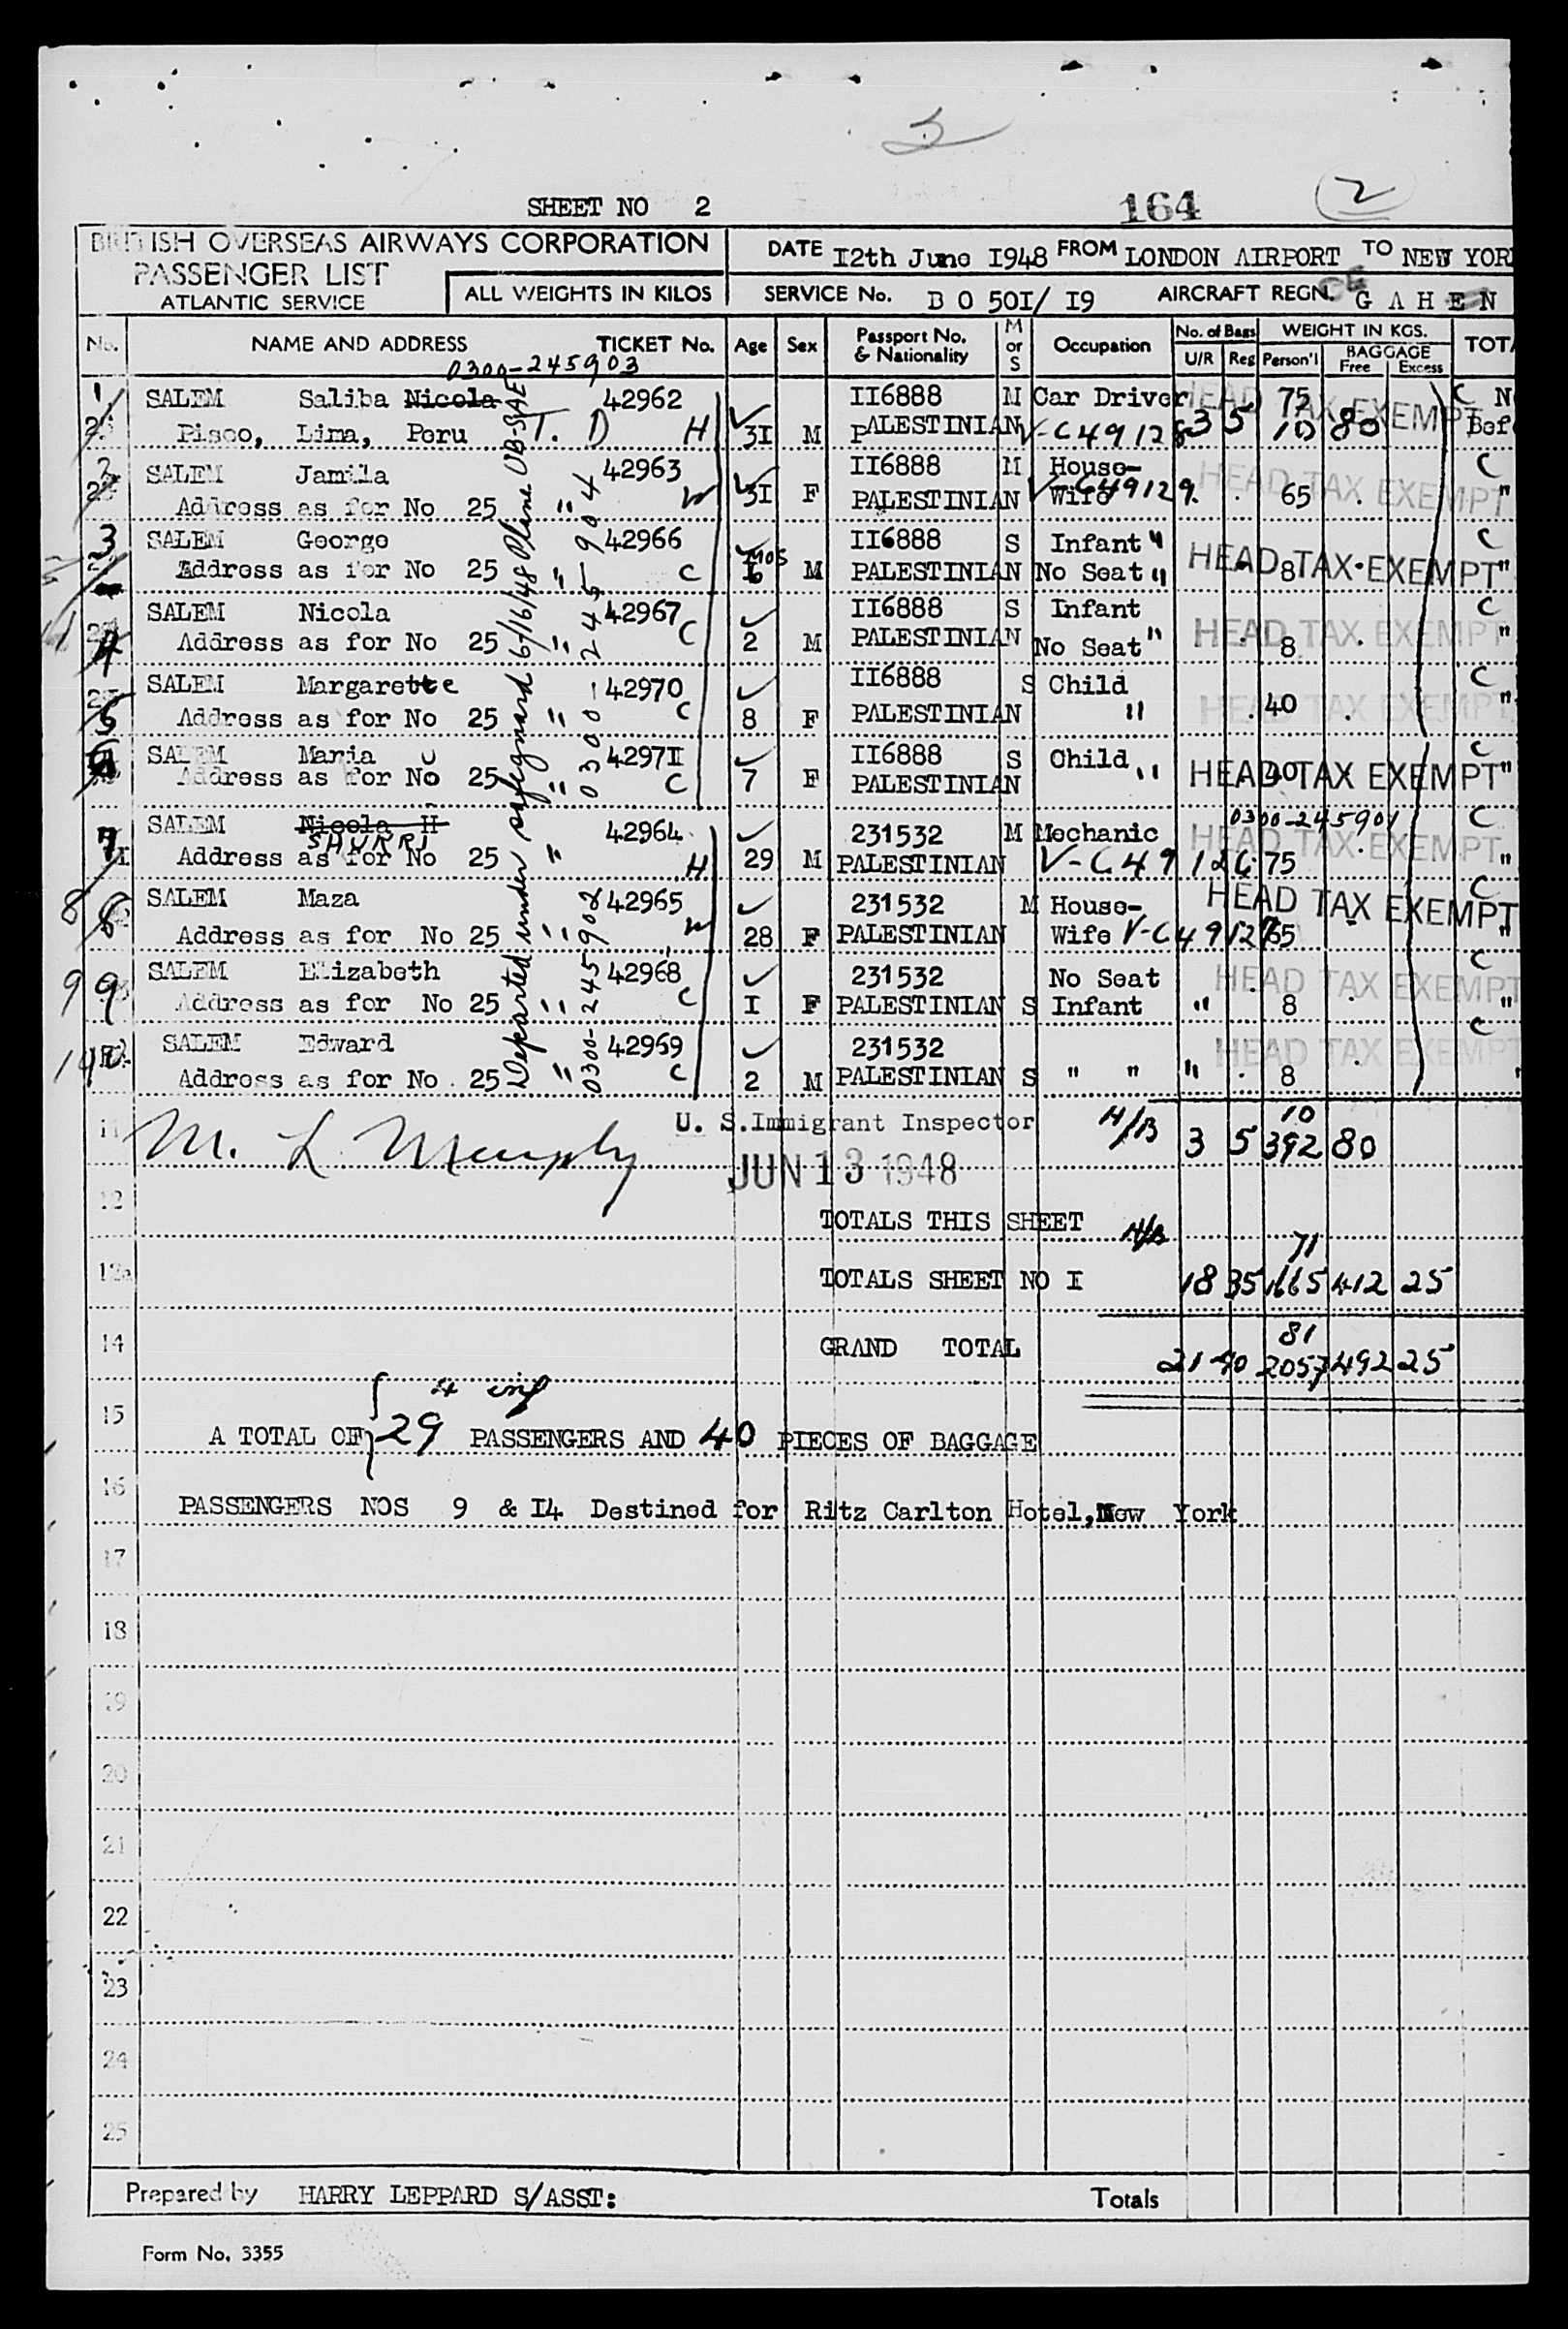 SHEET NO 2
164
2
BRITISH OVERSEAS AIRWAYS CORPORATION
PASSENGER LIST
ATLANTIC SERVICE
ALL WEIGHTS IN KILOS
DATE I2th June I948 FROM LONDON AIRPORT TO NEW YOR
SERVICE No. B O 50I/ I9 AIRCRAFT REGN. G A H E N
No. NAME AND ADDRESS TICKET No. Age Sex Passport No. & Nationality M or S Occupation No. of Bags U/R Reg WEIGHT IN KGS. Person'l BAGGAGE Free Excess TOTA
0300-245903
1 SALEM Saliba Nicola 42962 II6888 M Car Driver HEAD TAX EXEMPT 75 C N
Pisco, Lima, Peru T. D H 3I M PALESTINIAN V-C49128 3 5 10 80 Bef
2 SALEM Jamila 42963 II6888 M House- HEAD TAX EXEMPT C
Address as for No 25 " W 3I F PALESTINIAN Wife V-C49129 65 "
3 SALEM George 42966 mos II6888 S Infant " HEAD TAX EXEMPT C
Address as for No 25 " C 6 M PALESTINIAN No Seat " 8 "
4 SALEM Nicola 42967 II6888 S Infant HEAD TAX EXEMPT C
Address as for No 25 " C 2 M PALESTINIAN No Seat " 8 "
5 SALEM Margarette 42970 II6888 S Child HEAD TAX EXEMPT C
Address as for No 25 " C 8 F PALESTINIAN " 40 "
6 SALEM Maria 4297I II6888 S Child HEAD TAX EXEMPT C
Address as for No 25 " C 7 F PALESTINIAN " 40 "
0300-245901
7 SALEM Nicola H SHUKRI 42964 231532 M Mechanic HEAD TAX EXEMPT C
Address as for No 25 " H 29 M PALESTINIAN V-C49126 75 "
8 8 SALEM Maza 42965 231532 M House- HEAD TAX EXEMPT C
Address as for No 25 " W 28 F PALESTINIAN Wife V-C49127 65 "
9 9 SALEM Elizabeth 42968 231532 No Seat HEAD TAX EXEMPT C
Address as for No 25 " C I F PALESTINIAN S Infant " 8 "
10 SALEM Edward 42969 231532 HEAD TAX EXEMPT C
Address as for No. 25 " C 2 M PALESTINIAN S " " " 8 "
Departed under safeguard 6/16/48 Plane OB-SAE
0300-245902
0300-245904
11 M. L. Murphy U. S. Immigrant Inspector H/B 3 5 10 392 80
JUN 13 1948
12 TOTALS THIS SHEET H/B
71
12a TOTALS SHEET NO I 18 35 1665 412 25
81
14 GRAND TOTAL 21 40 2057 492 25
4 inf
15 A TOTAL OF 29 PASSENGERS AND 40 PIECES OF BAGGAGE
16 PASSENGERS NOS 9 & I4 Destined for Ritz Carlton Hotel, New York
17
18
19
20
21
22
23
24
25
Prepared by HARRY LEPPARD S/ASST: Totals
Form No. 3355